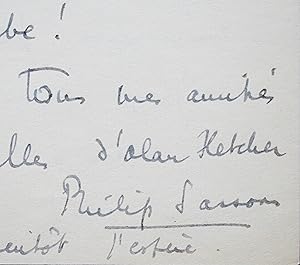 be !
Tous mes amitiés
lles d'Alan Fletcher
Philip Sassoon
ientôt j'espère.